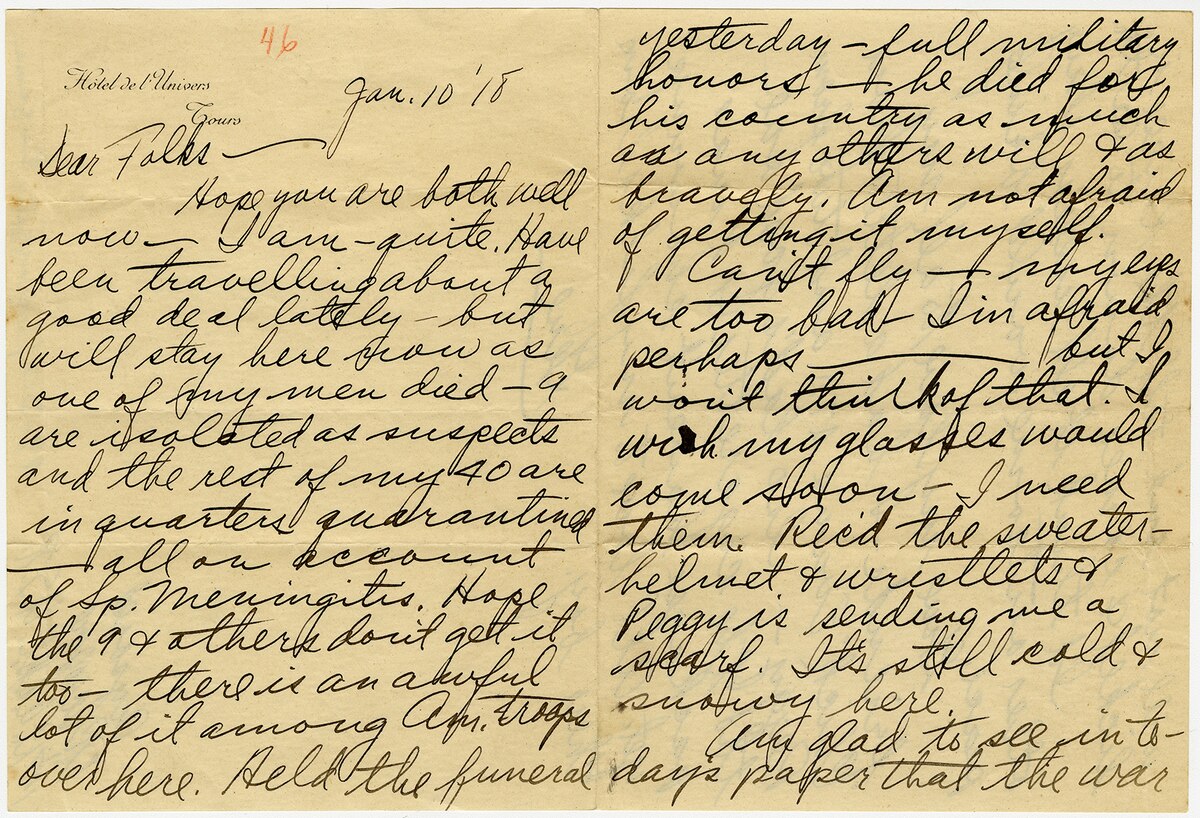 46
Hôtel de l'Univers
Tours
Jan. 10 '18
Dear Folks —
Hope you are both well
now — I am - quite. Have
been travelling about a
good deal lately - but
will stay here now as
one of my men died - 9
are isolated as suspects
and the rest of my 40 are
in quarters quarantined
— all on account
of Sp. Meningitis. Hope
the 9 & others don't get it
too - there is an awful
lot of it among Am. troops
over here. Held the funeral
yesterday - full military
honors — he died for
his country as much
as any others will & as
bravely. Am not afraid
of getting it myself.
Can't fly — my eyes
are too bad - I'm afraid
perhaps ——— but I
won't think of that. I
wish my glasses would
come soon - I need
them. Rec'd the sweater -
helmet & wristlets &
Peggy is sending me a
scarf. It's still cold &
snowy here.
Am glad to see in to-
day's paper that the war